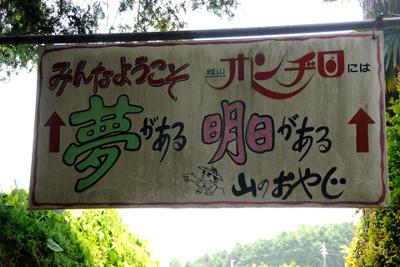 みんなようこそ 城山 ホンヂ口には
夢がある 明日がある
山のおやじ